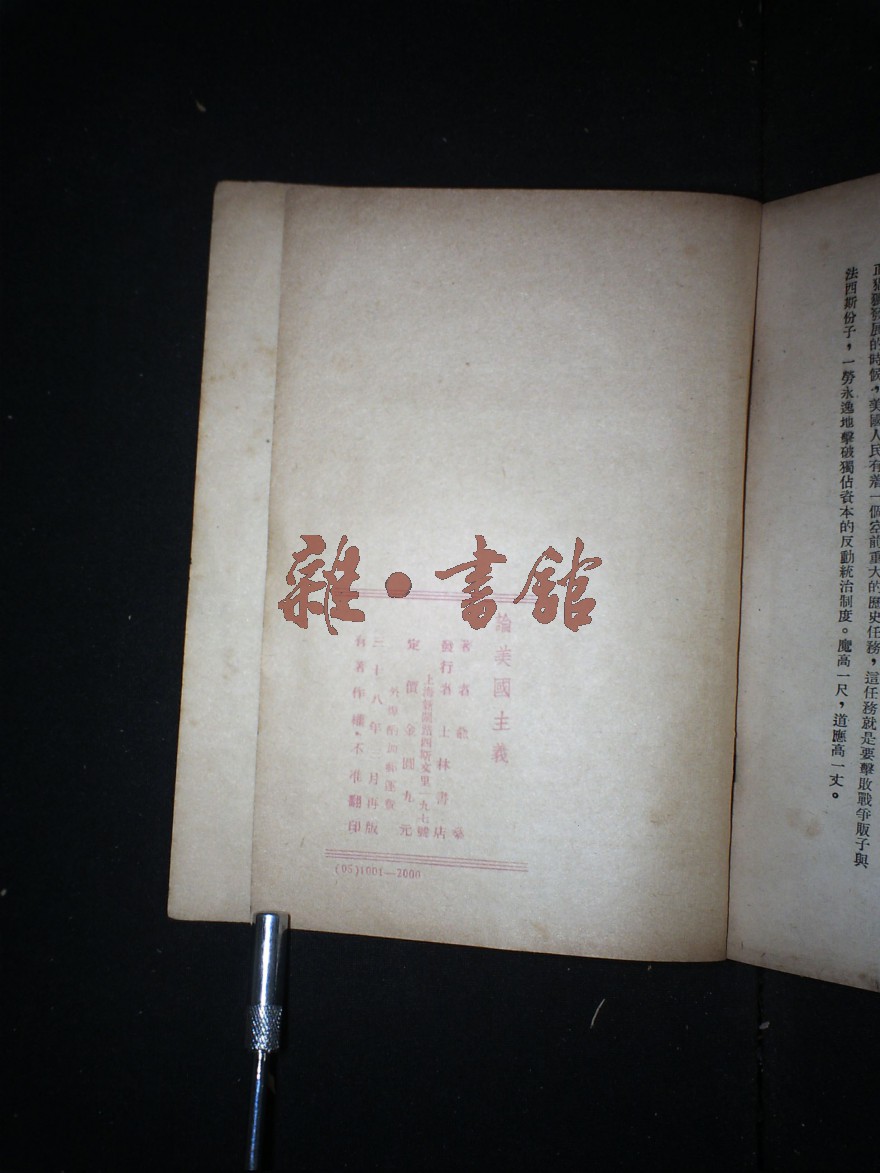 正猖獗發展的時候，美國人民有着一個空前重大的歷史任務，這任務就是要擊敗戰爭販子與
法西斯份子，一勞永逸地擊破獨佔資本的反動統治制度。魔高一尺，道應高一丈。
雜·書館
論美國主義
著者
發行者 士林書店
上海新閘路西斯文里一九七號
定價金圓九元
三十八年三月再版
有著作權·不准翻印
(95)1001—2000